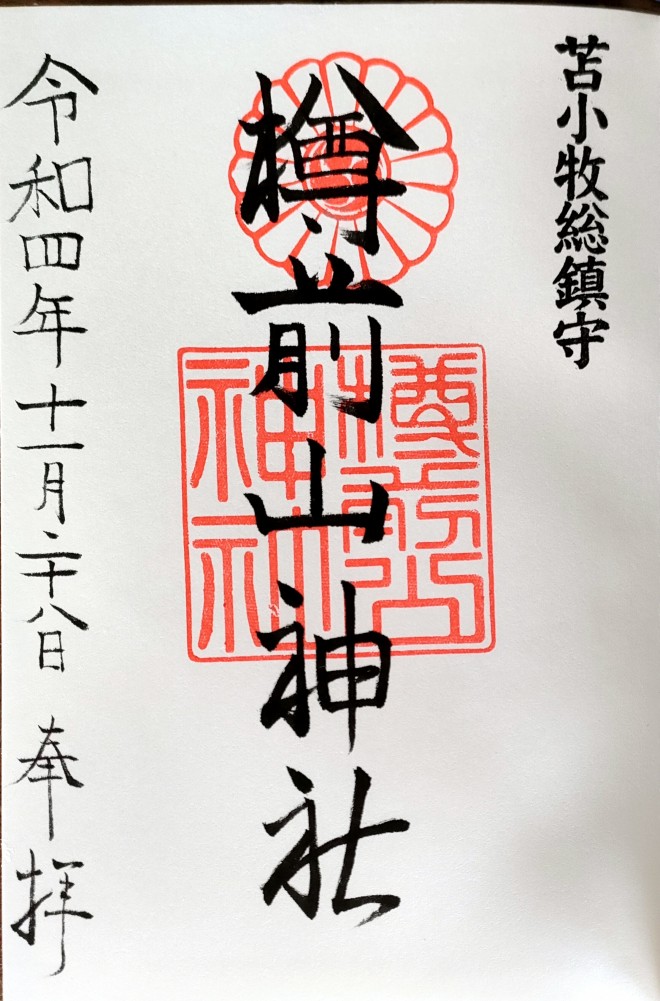 苫小牧総鎮守
樽前山神社
樽前山
神社
令和四年十一月二十八日 奉拝